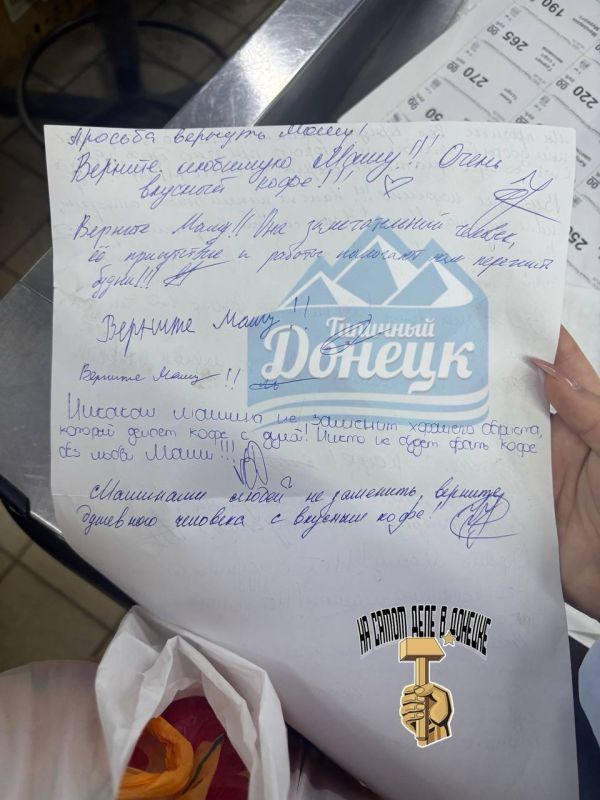 Просьба вернуть Машу!
Верните любимую Машу!!! Очень
вкусный кофе!!!
Верните Машу!! Она замечательный человек,
её присутствие и работа помогают нам пережить
будни!!!
Верните Машу!!
Верните Машу!!
Никакая машина не заменит хорошего бариста,
который делает кофе с душой! Никто не будет брать кофе
без любви Маши!!!
Машинами людей не заменить, верните
душевного человека с вкусным кофе!
Типичный
Донецк
НА САМОМ ДЕЛЕ В ДОНЕЦКЕ
190
265
220
270
250